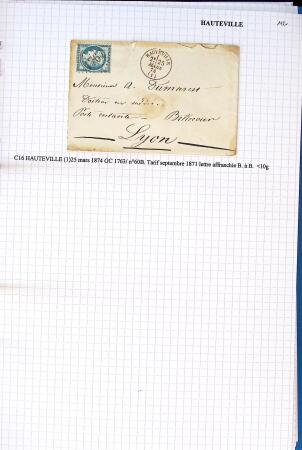 HAUTEVILLE
HAUTEVILLE
25
MARS
(1)
Monsieur A Dumarest
Docteur en
Poste restante Bellecour
Lyon
C16 HAUTEVILLE (1)25 mars 1874 GC 1763/ n°60B. Tarif septembre 1871 lettre affranchie B. à B. <10g